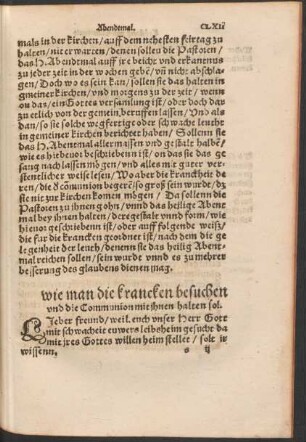 Abendemal. CLXII
mals in der kirchen / auff dem nehesten feirtag zu
halten / nit er warten / denen sollen die Pastoren /
das H. Abendemal auff jre beicht und erkantnus
zu jeder zeit in der wochen gebē / vñ nicht abschla-
gen / Doch wo es sein kan / sollen sie das halten in
gemeiner kirchen / vnd morgens zu der zeit / wenn
on das / ein Gottes versamlung ist / oder doch darzu
etlich von der gemein, beraffen lassen / Vnd als
dan / so sie solche wegfertige oder schwache leuthe
in gemeiner kirchen berichtet haben / Sollenn sie
das H. Abendemal aller massen vnd gestalt halbē /
wie es hie benor beschriebenn ist / on das sie das ge
sang nach lassen mögen / vnd alles mit guter ver-
stentlicher weise lesen / Wo aber die kranckheit de
ren / die Cōmunion begerē / so groß sein wurde / dz
sie nit zur kirchen komen mögen / Da sollenn die
Pastoren zu jhnen gohn / vnnd das heilige Abent
mal bey jhnen halten / der gestalt vnnd form / wie
hienor geschriebenn ist / oder auff folgende weiß /
die für die krancken geordnet ist / nach dem die ge
legenheit der leuth / denenn sie das heilig Abent-
mal reichen sollen / sein wurde vnnd es zu mehrer
besserung des glaubens dienen mag.
wie man die krancken besuchen
vnd die Communion mit jhnen halten sol.
Lieber freund / weil euch vnser Herr Gott
mit schwacheit euwers leibs heim gesucht da
mit jrs Gottes willen heim stellet / solt ir
wissenn,
s ij